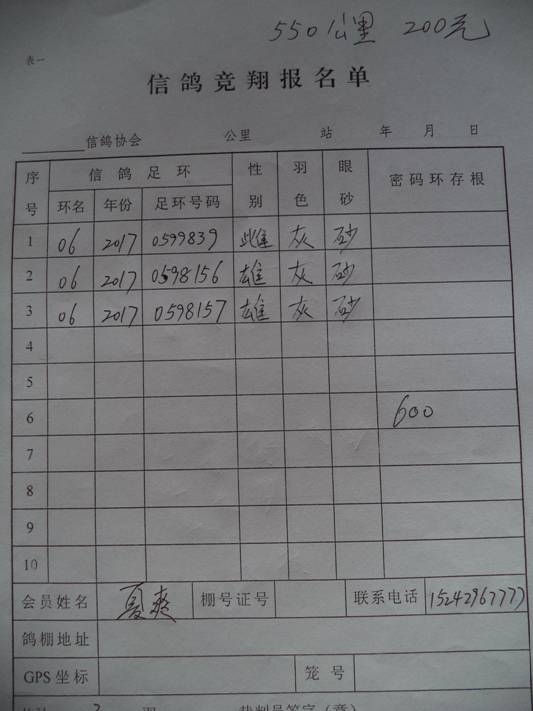 550公里 200元
表一
信鸽竞翔报名单
信鸽协会 公里 站 年 月 日
序号 信鸽足环 性别 羽色 眼砂 密码环存根
环名 年份 足环号码
1 06 2017 0599839 雌 灰 砂
2 06 2017 0598156 雄 灰 砂
3 06 2017 0598157 雄 灰 砂
4
5
6 600
7
8
9
10
会员姓名 夏爽 棚号证号 联系电话 15242967777
鸽棚地址
GPS坐标 笼号
3 羽 裁判员签字（章）